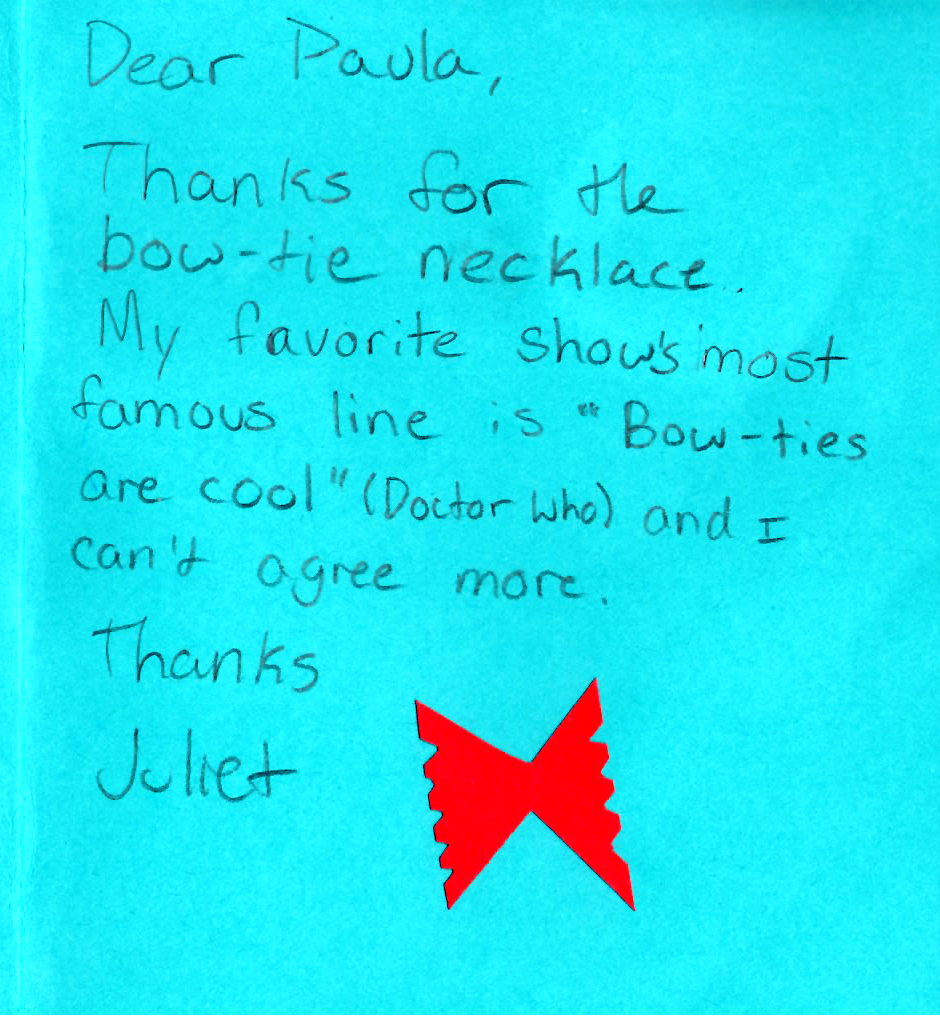 Dear Paula,
Thanks for the
bow-tie necklace..
My favorite show's most
famous line is "Bow-ties
are cool" (Doctor Who) and I
can't agree more.
Thanks
Juliet